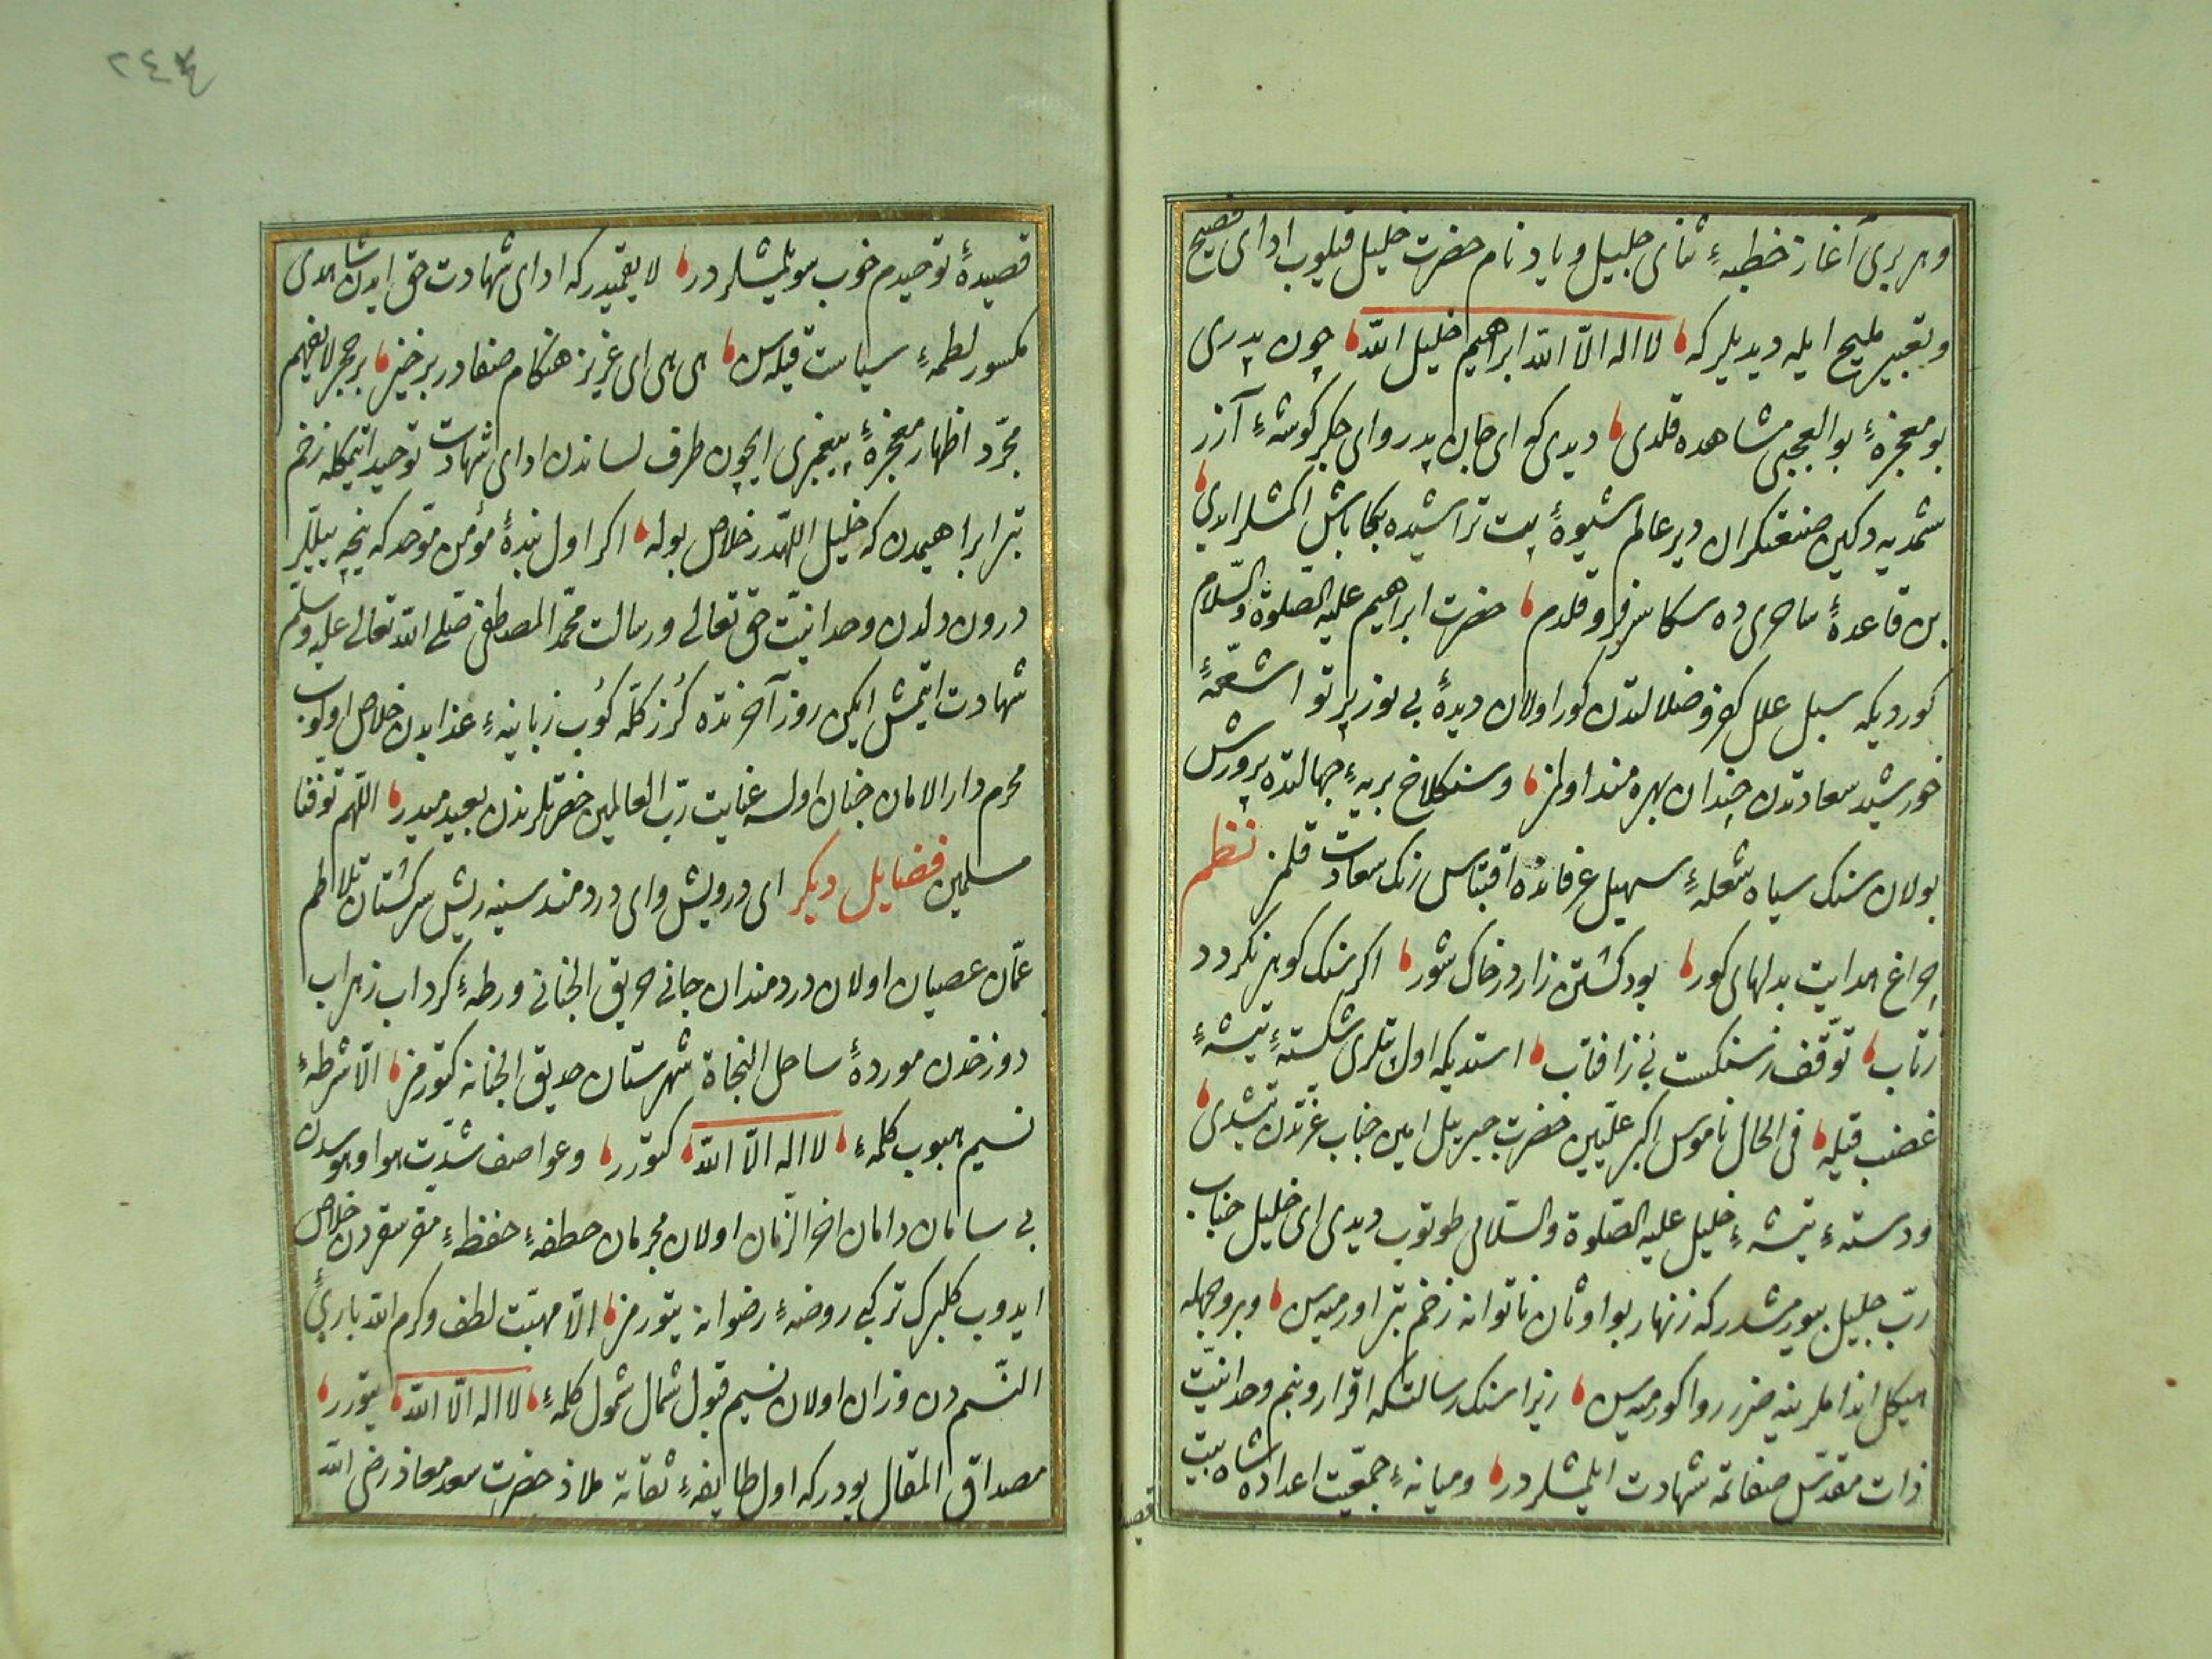 وهر بری آغاز خطبهٔ ثنای جلیل و یاد نام حضرت خلیل قیلوب ادای فصیح
و تعبیر ملیح ایله دیدیلر که لا اله الّا اللّه ابراهیم خلیل اللّه چون پدری
بو معجزهٔ بو العجبی مشاهده قلدی دیدی که ای جان پدر و ای جکر کوشهٔ آزر
شمدیه دکین صنعتکران دیر عالم شیوهٔ بت تراشیده بکا باش اکمشلر ایدی
بن قاعدهٔ ساحری ده سکا سر فرو قلدم حضرت ابراهیم علیه الصّلوة والسّلام
کوردیکه سبل علل کفر و ضلالتدن کور اولان دیدهٔ بی نور پرتو اشعّهٔ
خورشید سعادتدن چندان بهره مند اولمز و سنکلاخ بریهٔ جهالتده پرورش
بولان سنک سیاه شعلهٔ سهیل عرفانده اقتباس رنک سعادت قلمز نظم
چراغ هدایت بدلهای کور بود کشتن زار در خاک شور اکر سنک کوهر نکردد
زتاب توقّف ز سنکست نی ز افتاب استدیکه اول بتلری شکستهٔ تیشهٔ
غضب قیله فی الحال ناموس اکبر علّیین حضرت جبریل امین جناب عزّتدن یتشدی
و دستهٔ تیشهٔ خلیل علیه الصّلوة والسّلامی طوتوب دیدی ای خلیل جناب
ربّ جلیل بیورمشدر که زنهار بو اوثان ناتوانه زخم تبر اورمیه سن و بر وجهله
هیکل انداملرینه ضرر روا کورمیه سن زیرا سنک رسالتکه اقرار و بنم وحدانیّت
ذات مقدّس صفاتمه شهادت ایلمشلر در و میانهٔ جمعیّت اعداده شاه بیت
قصیدهٔ
قصیدهٔ توحیدم خوب سویلمشلر در لایق میدر که ادای شهادت حق ایدن شاهدی
مکسور لطمهٔ سیاست قیله سن هی هی ای عزیز هنکام صفادر برخیز بر حجر لا یفهم
مجرّد اظهار معجزهٔ پیغمبری ایچون طرف لساندن ادای شهادت توحید اتمکله زخم
تبر ابراهیمدن که خلیل اللّهدر خلاص بوله اکر اول بندهٔ مؤمن موحّد که نیجه ییللر
درون دلدن وحدانیّت حق تعالی و رسالت محمّد المصطفی صلّی اللّه تعالی علیه وسلّم
شهادت اتمش ایکن روز آخرتده کُرز کلّه کُوب زبانیهٔ عذابدن خلاص اولوب
محرم دار الامان جنان اولسه عنایت ربّ العالمین حضرتلرندن بعید میدر اللّهم توفّنا
مسلمین فضایل دیکر ای درویش و ای دردمند سینه ریش سرکشتان تلاطم
عمّان عصیان اولان دردمندان جانی حریق الجنانی ورطهٔ کرداب زهراب
دوزخدن موردهٔ ساحل النجاة شهرستان حدیق الجنانه کتورمز الّا شرطهٔ
نسیم هبوب کلمهٔ لا اله الّا اللّه کتورر و عواصف شدّت هوا و هوسدن
بی سامان دامان اخر الزّمان اولان مجرمان حطفهٔ حفظهٔ مقر سقردن خلاص
ایدوب کلبرک تر کبی روضهٔ رضوانه یتورمز الّا مهبّت لطف و کرم اللّه باری
النّسم دن وزان اولان نسیم قبول شمال شمول کلمهٔ لا اله الّا اللّه یتورر
مصداق المقال بودر که اول طایفهٔ ثقاته ملاذ حضرت سعد معاذ رضی اللّه